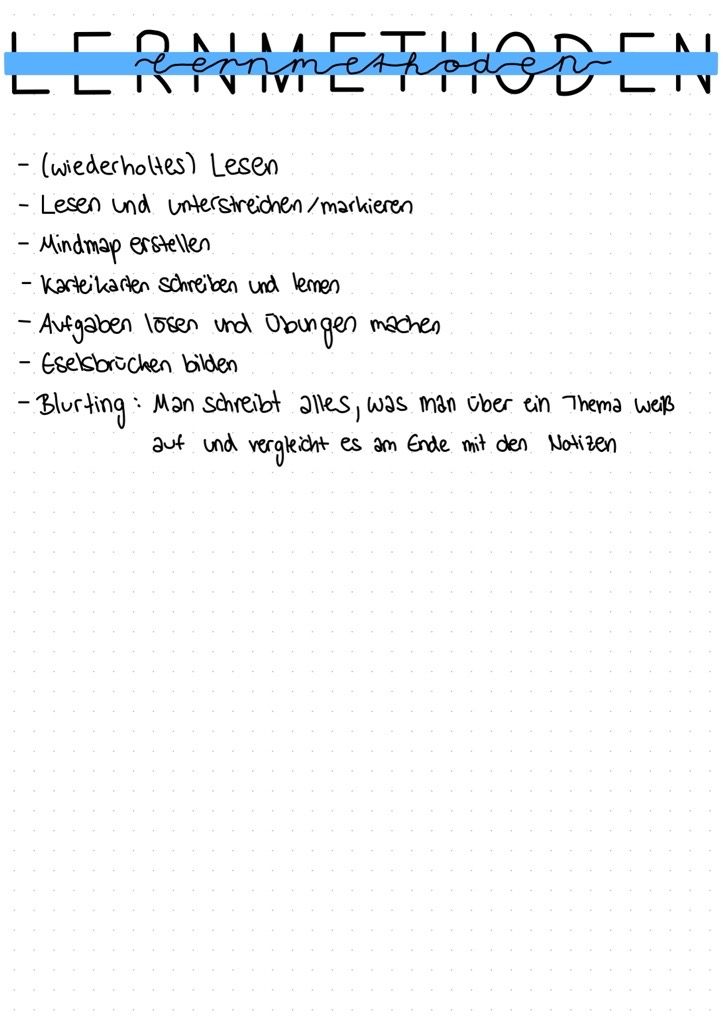 LERNMETHODEN
lernmethoden
- (wiederholtes) Lesen
- Lesen und unterstreichen/markieren
- Mindmap erstellen
- Karteikarten schreiben und lernen
- Aufgaben lösen und Übungen machen
- Eselsbrücken bilden
- Blurting: Man schreibt alles, was man über ein Thema weiß
auf und vergleicht es am Ende mit den Notizen